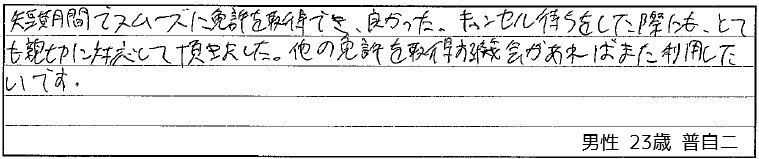 短期間でスムーズに免許を取得でき、良かった。キャンセル待ちをした際にも、とて
も親切に対応して頂きました。他の免許を取得する機会があればまた利用した
いです。
男性 23歳 普自二